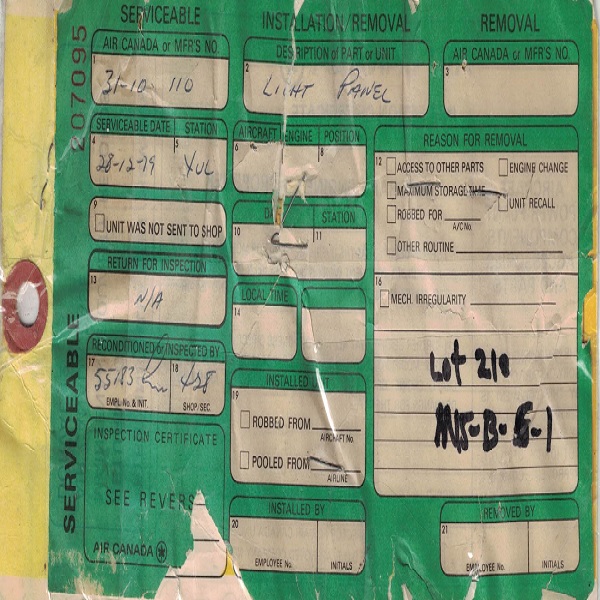 SERVICEABLE
INSTALLATION/REMOVAL
REMOVAL
207095
AIR CANADA or MFR'S NO.
1
31-10 110
DESCRIPTION of PART or UNIT
2
LIGHT PANEL
AIR CANADA or MFR'S NO.
3
SERVICEABLE DATE
STATION
4
28-12-79
5
YUL
AIRCRAFT
ENGINE
POSITION
6
8
REASON FOR REMOVAL
12
ACCESS TO OTHER PARTS
ENGINE CHANGE
MAXIMUM STORAGE TIME
UNIT RECALL
ROBBED FOR
A/C No.
OTHER ROUTINE
9
UNIT WAS NOT SENT TO SHOP
STATION
10
11
RETURN FOR INSPECTION
13
N/A
LOCAL TIME
14
16
MECH. IRREGULARITY
RECONDITIONED & INSPECTED BY
17
55183
18
428
EMPL. No. & INIT.
SHOP/SEC.
Lot 210
M5-B-5-1
19
ROBBED FROM
AIRCRAFT No.
POOLED FROM
AIRLINE
INSPECTION CERTIFICATE
SEE REVERS
AIR CANADA
SERVICEABLE
INSTALLED BY
20
EMPLOYEE No.
INITIALS
REMOVED BY
21
EMPLOYEE No.
INITIALS